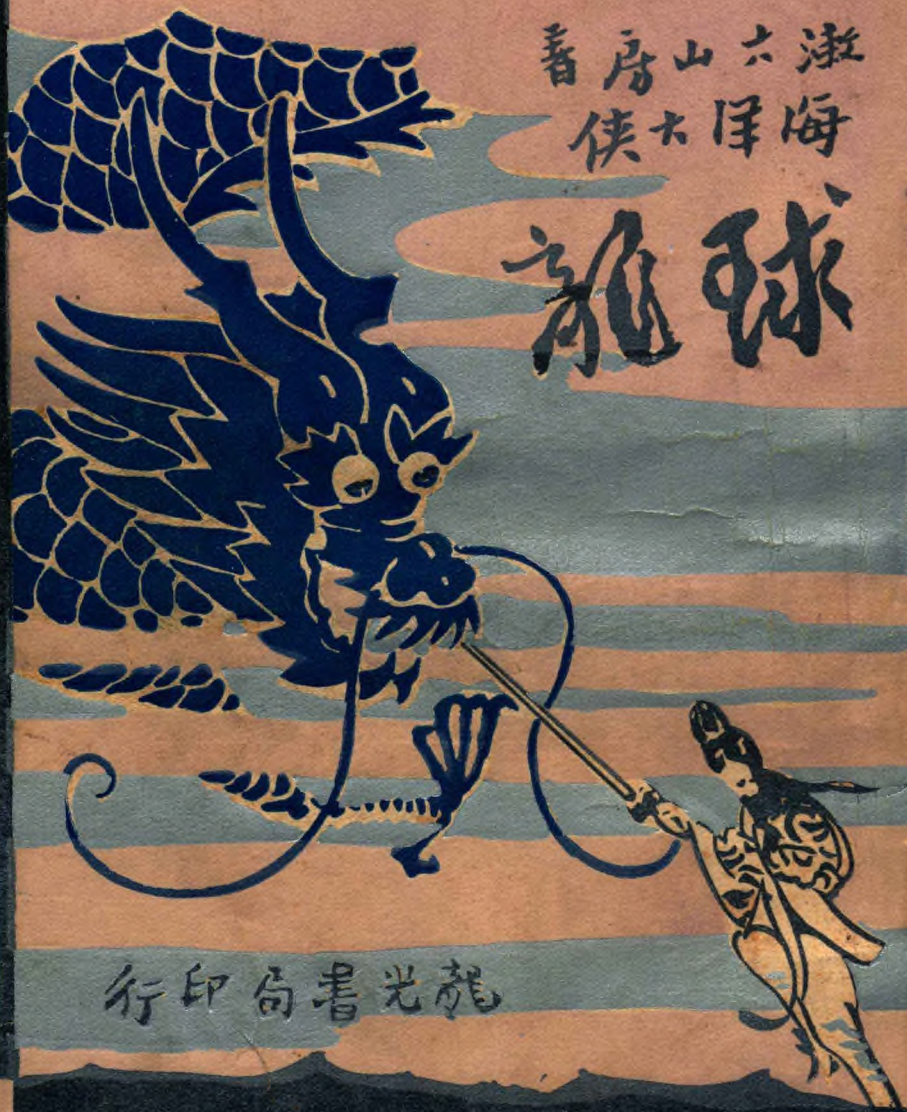 漱六山房著
海洋大俠
球龍
龍光書局印行